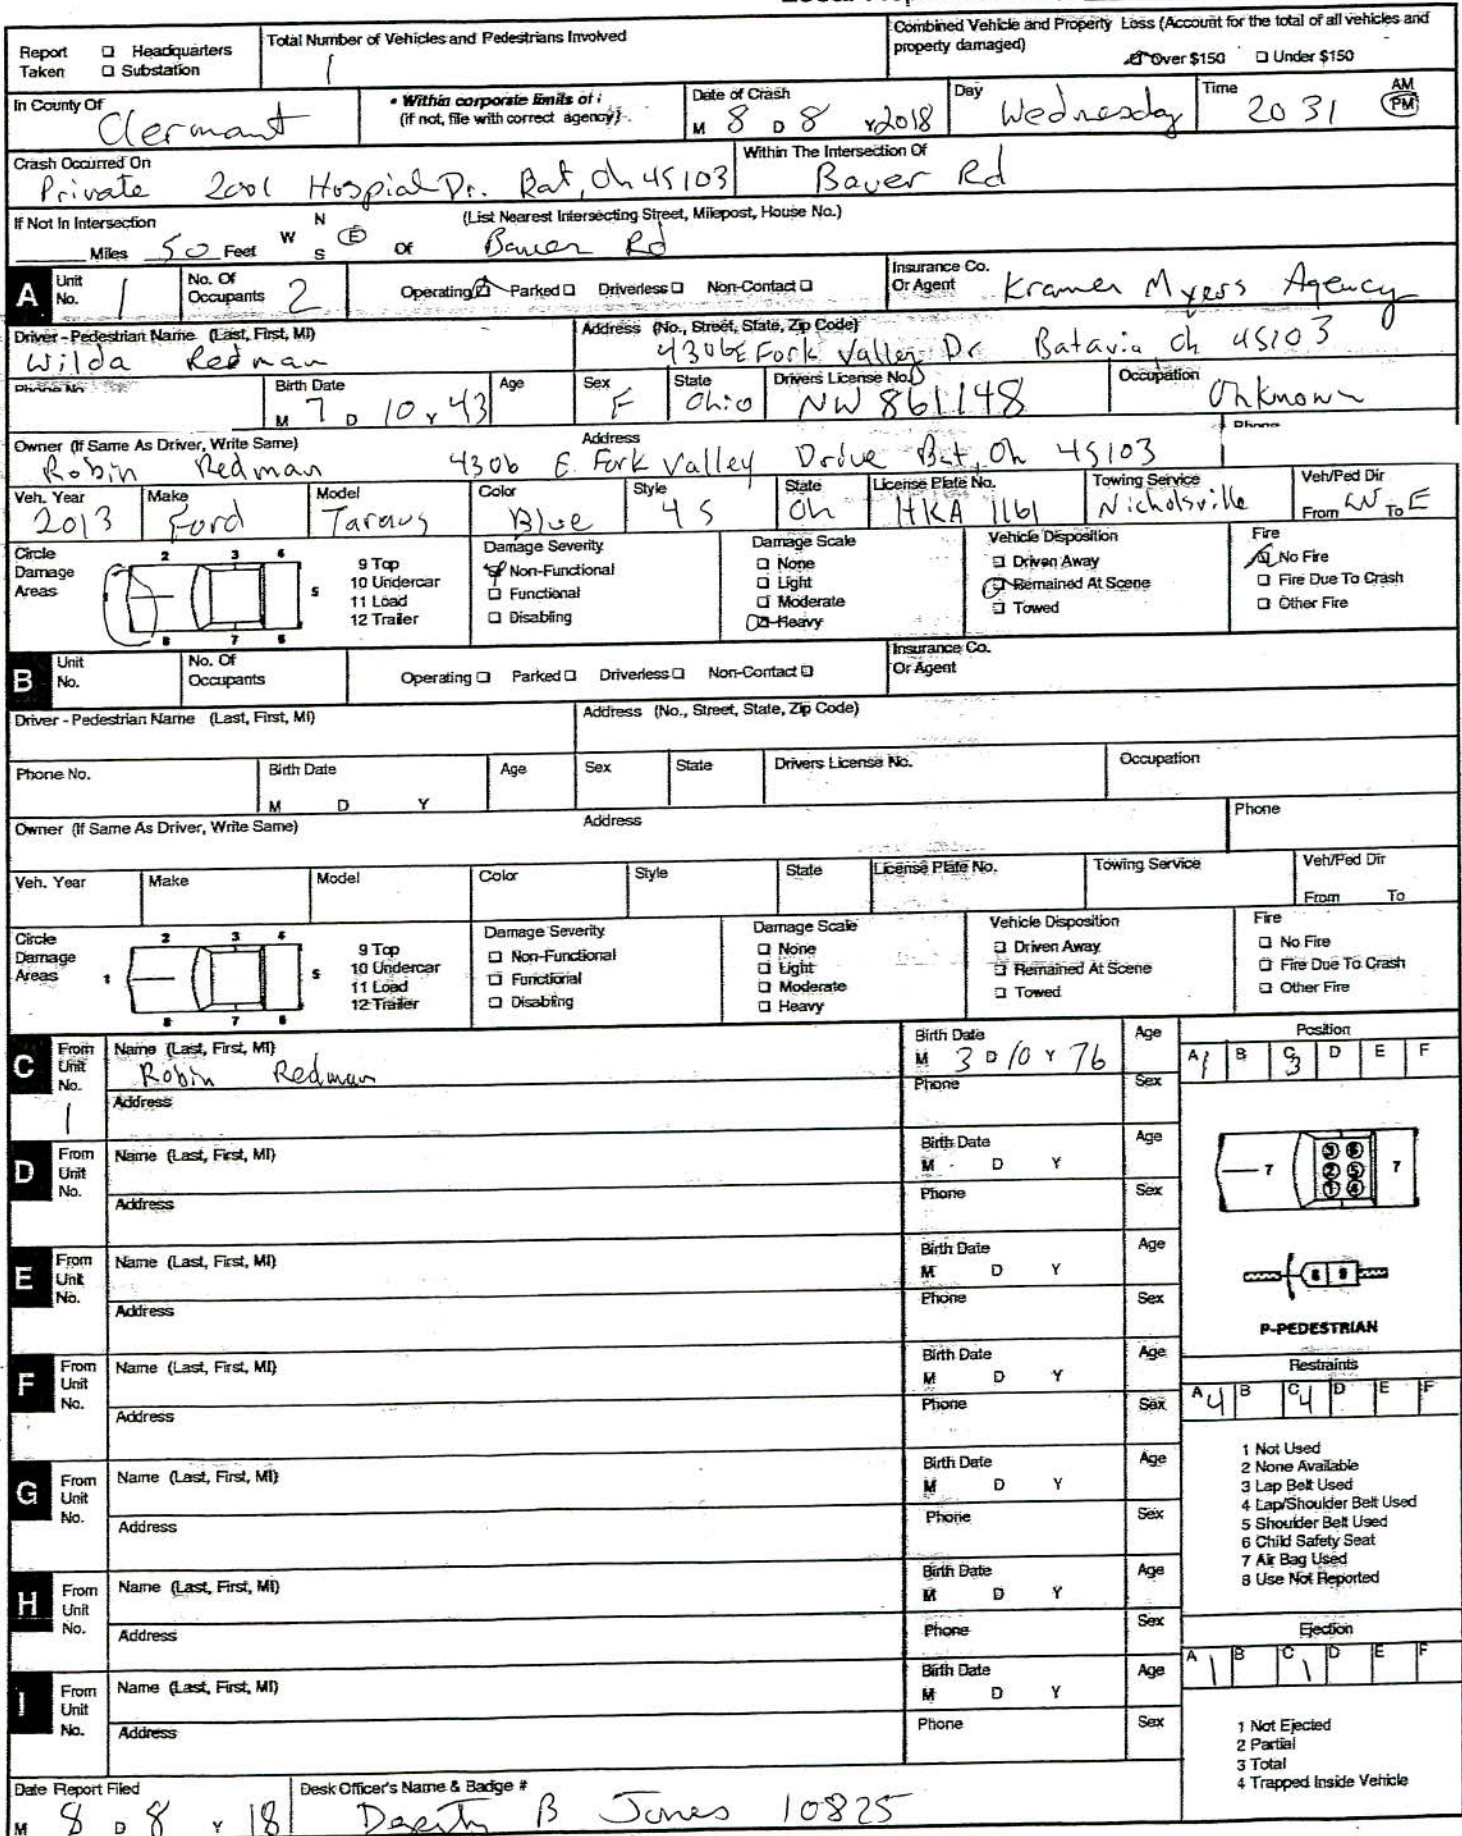 Report Taken □ Headquarters □ Substation
Total Number of Vehicles and Pedestrians Involved
1
Combined Vehicle and Property Loss (Account for the total of all vehicles and property damaged)
Over $150 □ Under $150
In County Of
Clermant
• Within corporate limits of:
(if not, file with correct agency)
Date of Crash
M 8 D 8 Y 2018
Day
Wednesday
Time
2031
AM
PM
Crash Occurred On
Private 2001 Hospial Dr. Bat, Oh 45103
Within The Intersection Of
Bauer Rd
If Not In Intersection
(List Nearest Intersecting Street, Milepost, House No.)
Miles 50 Feet N W E S Of Bauer Rd
A
Unit No. 1
No. Of Occupants 2
Operating Parked □ Driverless □ Non-Contact □
Insurance Co. Or Agent Kramer Myers Agency
Driver - Pedestrian Name (Last, First, MI)
Wilda Redman
Address (No., Street, State, Zip Code)
4306 E Fork Valley Dr Batavia Oh 45103
Phone No.
Birth Date
M 7 D 10 Y 43
Age
Sex
F
State
Ohio
Drivers License No.
NW 861148
Occupation
Unknown
Owner (If Same As Driver, Write Same)
Robin Redman
Address
4306 E. Fork Valley Drive Bat, Oh 45103
Phone
Veh. Year
2013
Make
Ford
Model
Taraus
Color
Blue
Style
4 S
State
Oh
License Plate No.
HKA 1161
Towing Service
Nicholsville
Veh/Ped Dir
From W To E
Circle Damage Areas
2 3 4
5
8 7 6
9 Top
10 Undercar
11 Load
12 Trailer
Damage Severity
Non-Functional
□ Functional
□ Disabling
Damage Scale
□ None
□ Light
□ Moderate
Heavy
Vehicle Disposition
□ Driven Away
Remained At Scene
□ Towed
Fire
No Fire
□ Fire Due To Crash
□ Other Fire
B
Unit No.
No. Of Occupants
Operating □ Parked □ Driverless □ Non-Contact □
Insurance Co. Or Agent
Driver - Pedestrian Name (Last, First, MI)
Address (No., Street, State, Zip Code)
Phone No.
Birth Date
M D Y
Age
Sex
State
Drivers License No.
Occupation
Owner (If Same As Driver, Write Same)
Address
Phone
Veh. Year
Make
Model
Color
Style
State
License Plate No.
Towing Service
Veh/Ped Dir
From To
Circle Damage Areas
2 3 4
1 5
8 7 6
9 Top
10 Undercar
11 Load
12 Trailer
Damage Severity
□ Non-Functional
□ Functional
□ Disabling
Damage Scale
□ None
□ Light
□ Moderate
□ Heavy
Vehicle Disposition
□ Driven Away
□ Remained At Scene
□ Towed
Fire
□ No Fire
□ Fire Due To Crash
□ Other Fire
C
From Unit No.
1
Name (Last, First, MI)
Robin Redman
Address
Birth Date
M 3 D 10 Y 76
Age
Phone
Sex
Position
A 1 B C 3 D E F
D
From Unit No.
Name (Last, First, MI)
Address
Birth Date
M D Y
Age
Phone
Sex
7
3 6
2 5
1 4
7
E
From Unit No.
Name (Last, First, MI)
Address
Birth Date
M D Y
Age
Phone
Sex
8 9
P-PEDESTRIAN
F
From Unit No.
Name (Last, First, MI)
Address
Birth Date
M D Y
Age
Phone
Sex
Restraints
A 4 B C 4 D E F
1 Not Used
2 None Available
3 Lap Belt Used
4 Lap/Shoulder Belt Used
5 Shoulder Belt Used
6 Child Safety Seat
7 Air Bag Used
8 Use Not Reported
G
From Unit No.
Name (Last, First, MI)
Address
Birth Date
M D Y
Age
Phone
Sex
H
From Unit No.
Name (Last, First, MI)
Address
Birth Date
M D Y
Age
Phone
Sex
Ejection
A 1 B C 1 D E F
1 Not Ejected
2 Partial
3 Total
4 Trapped Inside Vehicle
I
From Unit No.
Name (Last, First, MI)
Address
Birth Date
M D Y
Age
Phone
Sex
Date Report Filed
M 8 D 8 Y 18
Desk Officer's Name & Badge #
B Jones 10825